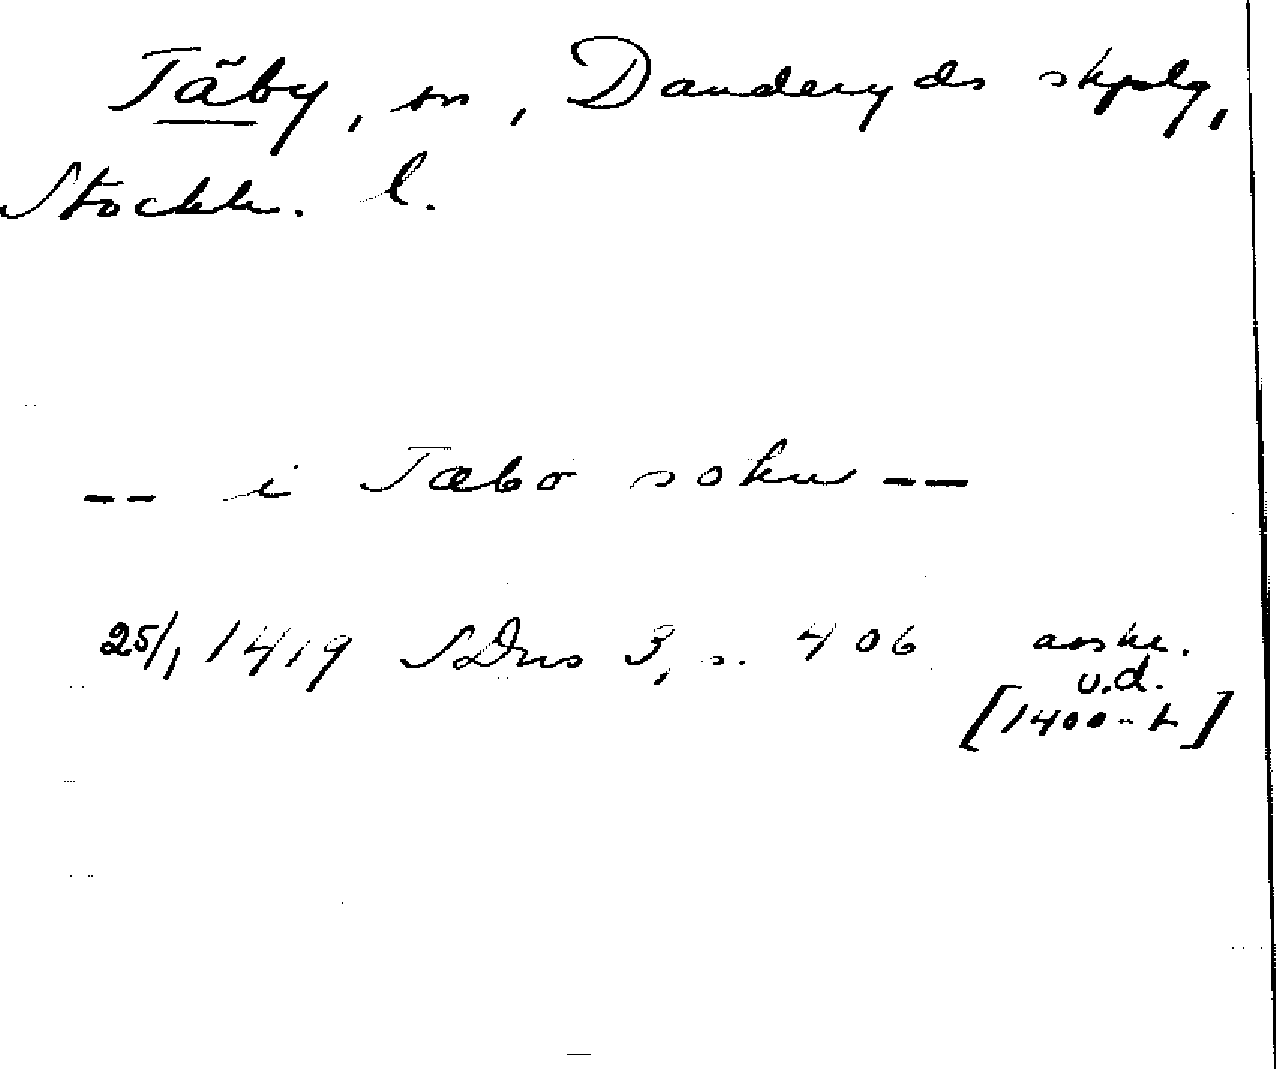 Täby, sn, Danderyds skplg,
Stockh. l.
-- i Tæbo sokn --
25/1 1419 SDns 3, s. 406 avskr.
u.d.
[1400-t]